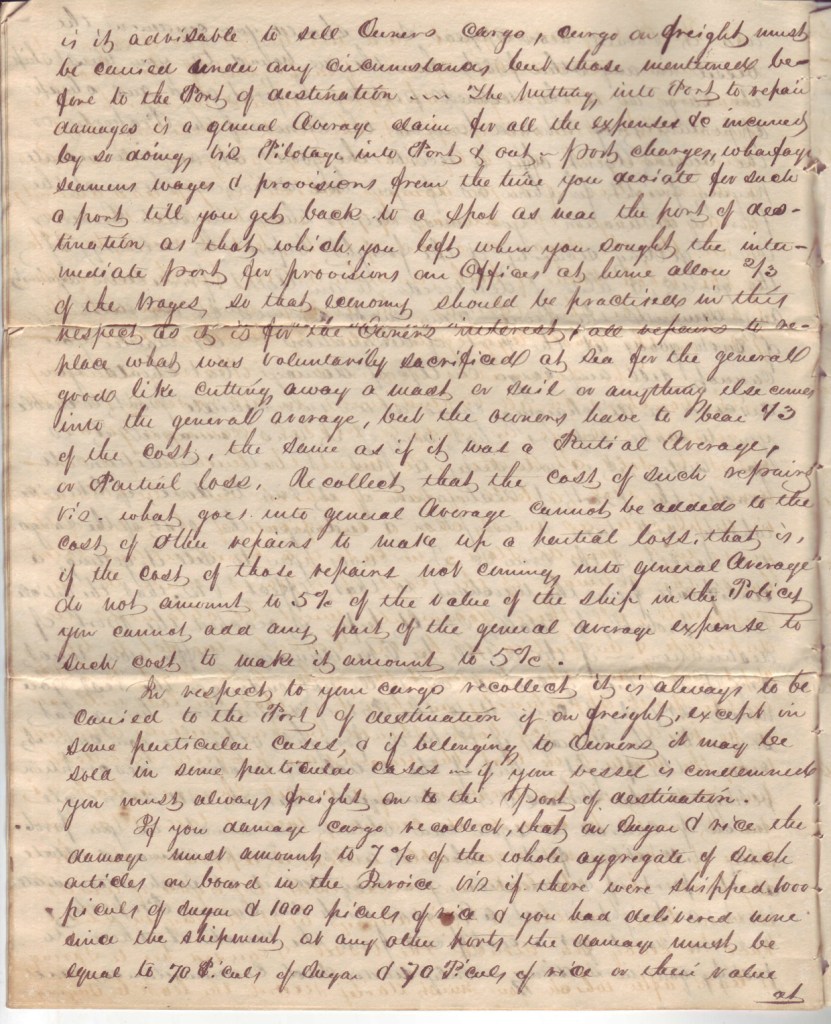 is it advisable to sell Owners Cargo, cargo on freight must
be carried under any circumstances but those mentioned be-
fore to the Port of destination .... The putting into Port to repair
damages is a general Average claim for all the expenses &c incurred
by so doing, viz Pilotage into Port & out - port charges, wharfage
seamens wages & provisions from the time you deviate for such
a port till you get back to a spot as near the port of des-
tination as that which you left when you sought the inter-
mediate port for provisions our Offices at home allow 2/3
of the wages, so that economy should be practised in this
respect as it is for the "Owner's" interest, & all repairs to re-
place what was voluntarily sacrificed at sea for the general
good like cutting away a mast or sail or anything else comes
into the general average, but the owners have to bear 1/3
of the cost, the same as if it was a Partial Average,
or Partial loss. Recollect that the cost of such repairs
viz. what goes into general Average cannot be added to the
cost of other repairs to make up a partial loss, that is,
if the cost of those repairs not coming into general Average
do not amount to 5% of the value of the ship in the Policy
you cannot add any part of the general average expense to
such cost to make it amount to 5%.
In respect to your cargo recollect it is always to be
carried to the Port of destination if on freight, except in
some particular cases, & if belonging to Owners it may be
sold in some particular cases - if your vessel is condemned
you must always freight on to the Port of destination.
If you damage cargo recollect, that on Sugar & rice the
damage must amount to 7% of the whole aggregate of such
articles on board in the Invoice viz if there were shipped 1000
piculs of Sugar & 1000 piculs of rice & you had delivered none
since the shipment at any other ports the damage must be
equal to 70 Piculs of Sugar & 70 Piculs of rice or their value
at